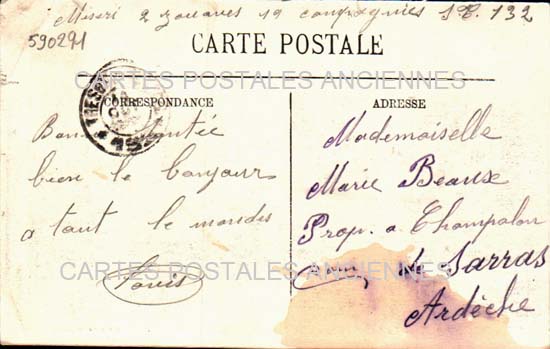 Miseri 2 zouaves 19 compagnies S.P. 132
590291
CARTE POSTALE
CARTES POSTALES ANCIENNES
CORRESPONDANCE
ADRESSE
TRESOR
152
Bonne santée
bien le bonjour
a tout le mondes
Louis
Mademoiselle
Marie Beaux
Prop. a Champalon
Com, de Sarras
Ardèche
CARTES POSTALES ANCIENNES